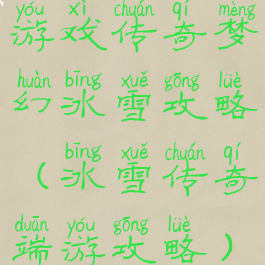 yóu xì chuán qí mèng
游戏传奇梦
huàn bīng xuě gōng lüè
幻冰雪攻略
bīng xuě chuán qí
（冰雪传奇
duān yóu gōng lüè
端游攻略）